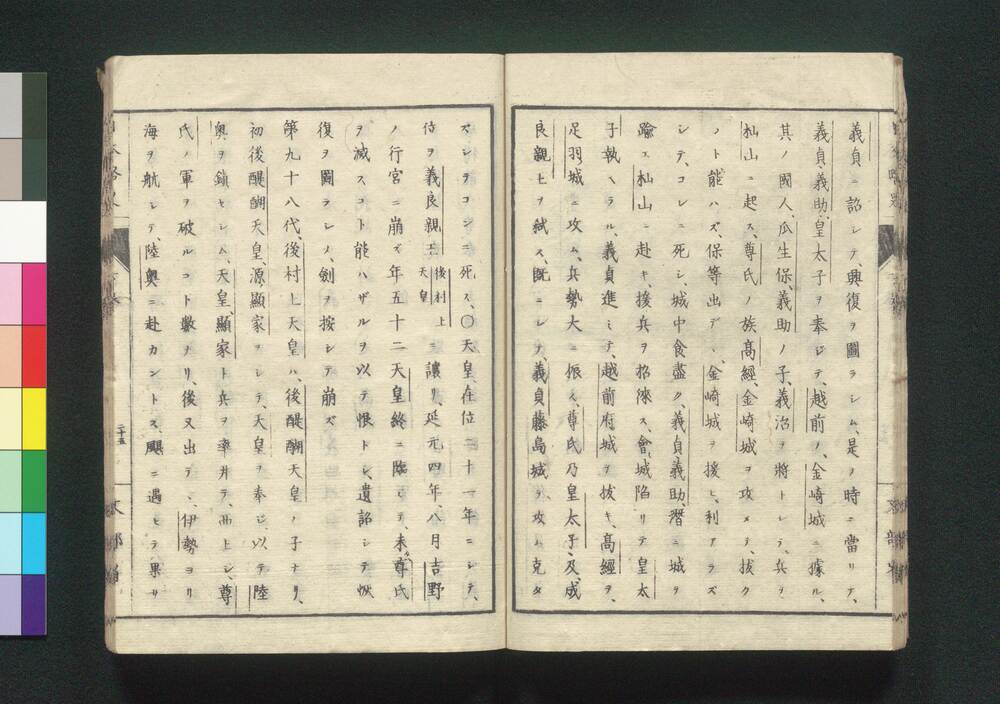 義貞ニ詔シテ、興復ヲ圖ラシム、是ノ時ニ當リテ、
義貞、義助、皇太子ヲ奉ジテ、越前ノ、金崎城ニ據ル、
其ノ國人、瓜生保、義助ノ子、義治ヲ將トシテ、兵ヲ
杣山ニ起ス、尊氏ノ族高經、金崎城ヲ攻メテ、拔ク
ノト能ハズ、保等出デヽ、金崎城ヲ援ヒ、利アラズ
シテ、コレニ死シ、城中食盡ク、義貞義助、潛ニ城ヲ
踰エ、杣山ニ赴キ、援兵ヲ招徠ス、會城陷リテ皇太
子執ヘラル、義貞進ミテ、越前府城ヲ拔キ、高經ヲ、
足羽城ニ攻ム、兵勢大ニ振ス、尊氏乃皇太子、及、成
良親王ヲ弑ス、既ニシテ、義貞藤島城ヲ攻ム、克タ
ズシテコヽニ死ス、〇天皇、在位二十一年ニシテ、
位ヲ義良親王後村上天皇ニ讓リ、延元四年、八月吉野
ノ行宮ニ崩ズ年五十二天皇終ニ臨ミテ、未尊氏
ヲ滅スコト能ハザルヲ以テ恨トシ、遺詔シテ恢
復ヲ圖ラシメ、劍ヲ按シテ崩ズ
第九十八代、後村上天皇ハ、後醍醐天皇ノ子ナリ、
初後醍醐天皇、源顯家ヲシテ、天皇ヲ奉ジ、以テ陸
奧ヲ鎮セシム、天皇、顯家ト兵ヲ率井テ、西上シ、尊
氏ノ軍ヲ破ルコト數ナリ、後又出デヽ、伊勢ヨリ
海ヲ航シテ、陸奧ニ赴カントス、颶ニ遇ヒテ果サ
二十五
文部省